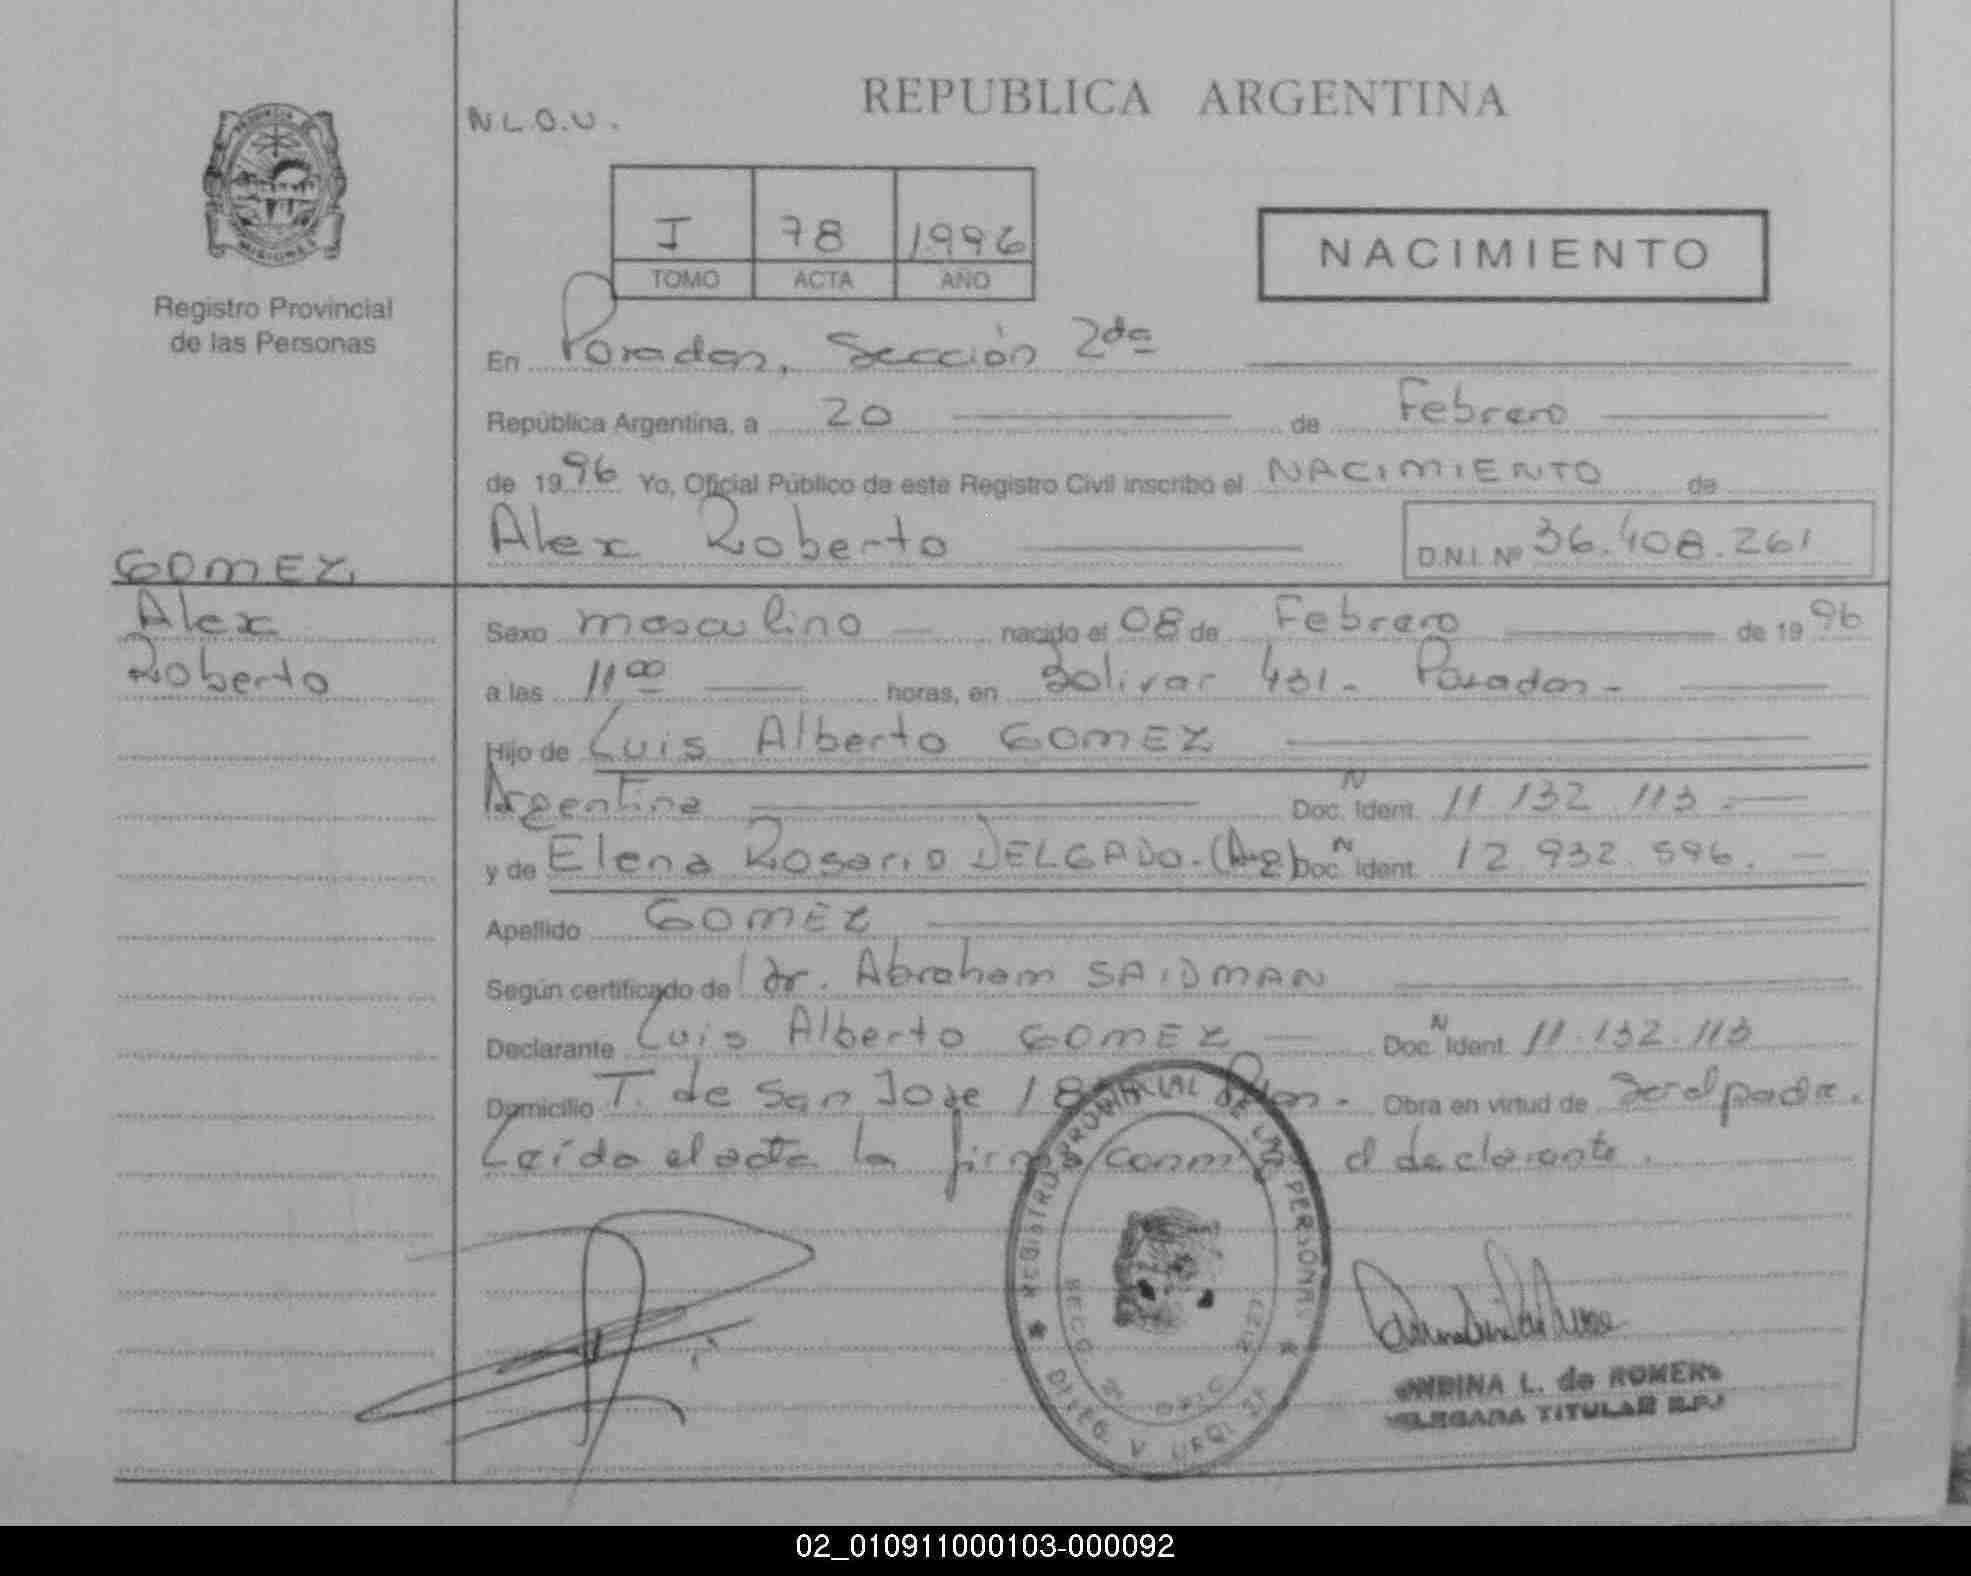 REPUBLICA ARGENTINA
N.L.O.U.
I 78 1996
TOMO ACTA AÑO
NACIMIENTO
MISIONES
Registro Provincial
de las Personas
En Posadas, Sección 2da
República Argentina, a 20 de Febrero
de 1996 Yo, Oficial Público de este Registro Civil inscribo el NACIMIENTO de
Alex Roberto D.N.I. Nº 36.408.261
GOMEZ,
Alex
Roberto
Sexo masculino nacido el 08 de Febrero de 1996
a las 11 00 horas, en Bolivar 431 - Posadas -
Hijo de Luis Alberto GOMEZ
Argentina Doc. N Ident. 11.132.113.
y de Elena Rosario DELGADO. (Ag) Doc. N Ident. 12.932.596.
Apellido GOMEZ
Según certificado de dr. Abraham SAIDMAN
Declarante Luis Alberto GOMEZ Doc. N Ident. 11.132.113
Domicilio T. de San Jose Obra en virtud de Ser el padre.
Leída el acta la firma conmigo el declarante.
REGISTRO PROVINCIAL DE LAS PERSONAS
L. de ROMERO
TITULAR
02_010911000103-000092